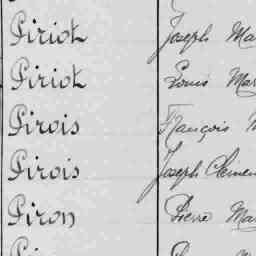 Piriot Joseph Ma
Piriot Louis Mar
Pirois François
Pirois Joseph Clémen
Piron Pierre Mar